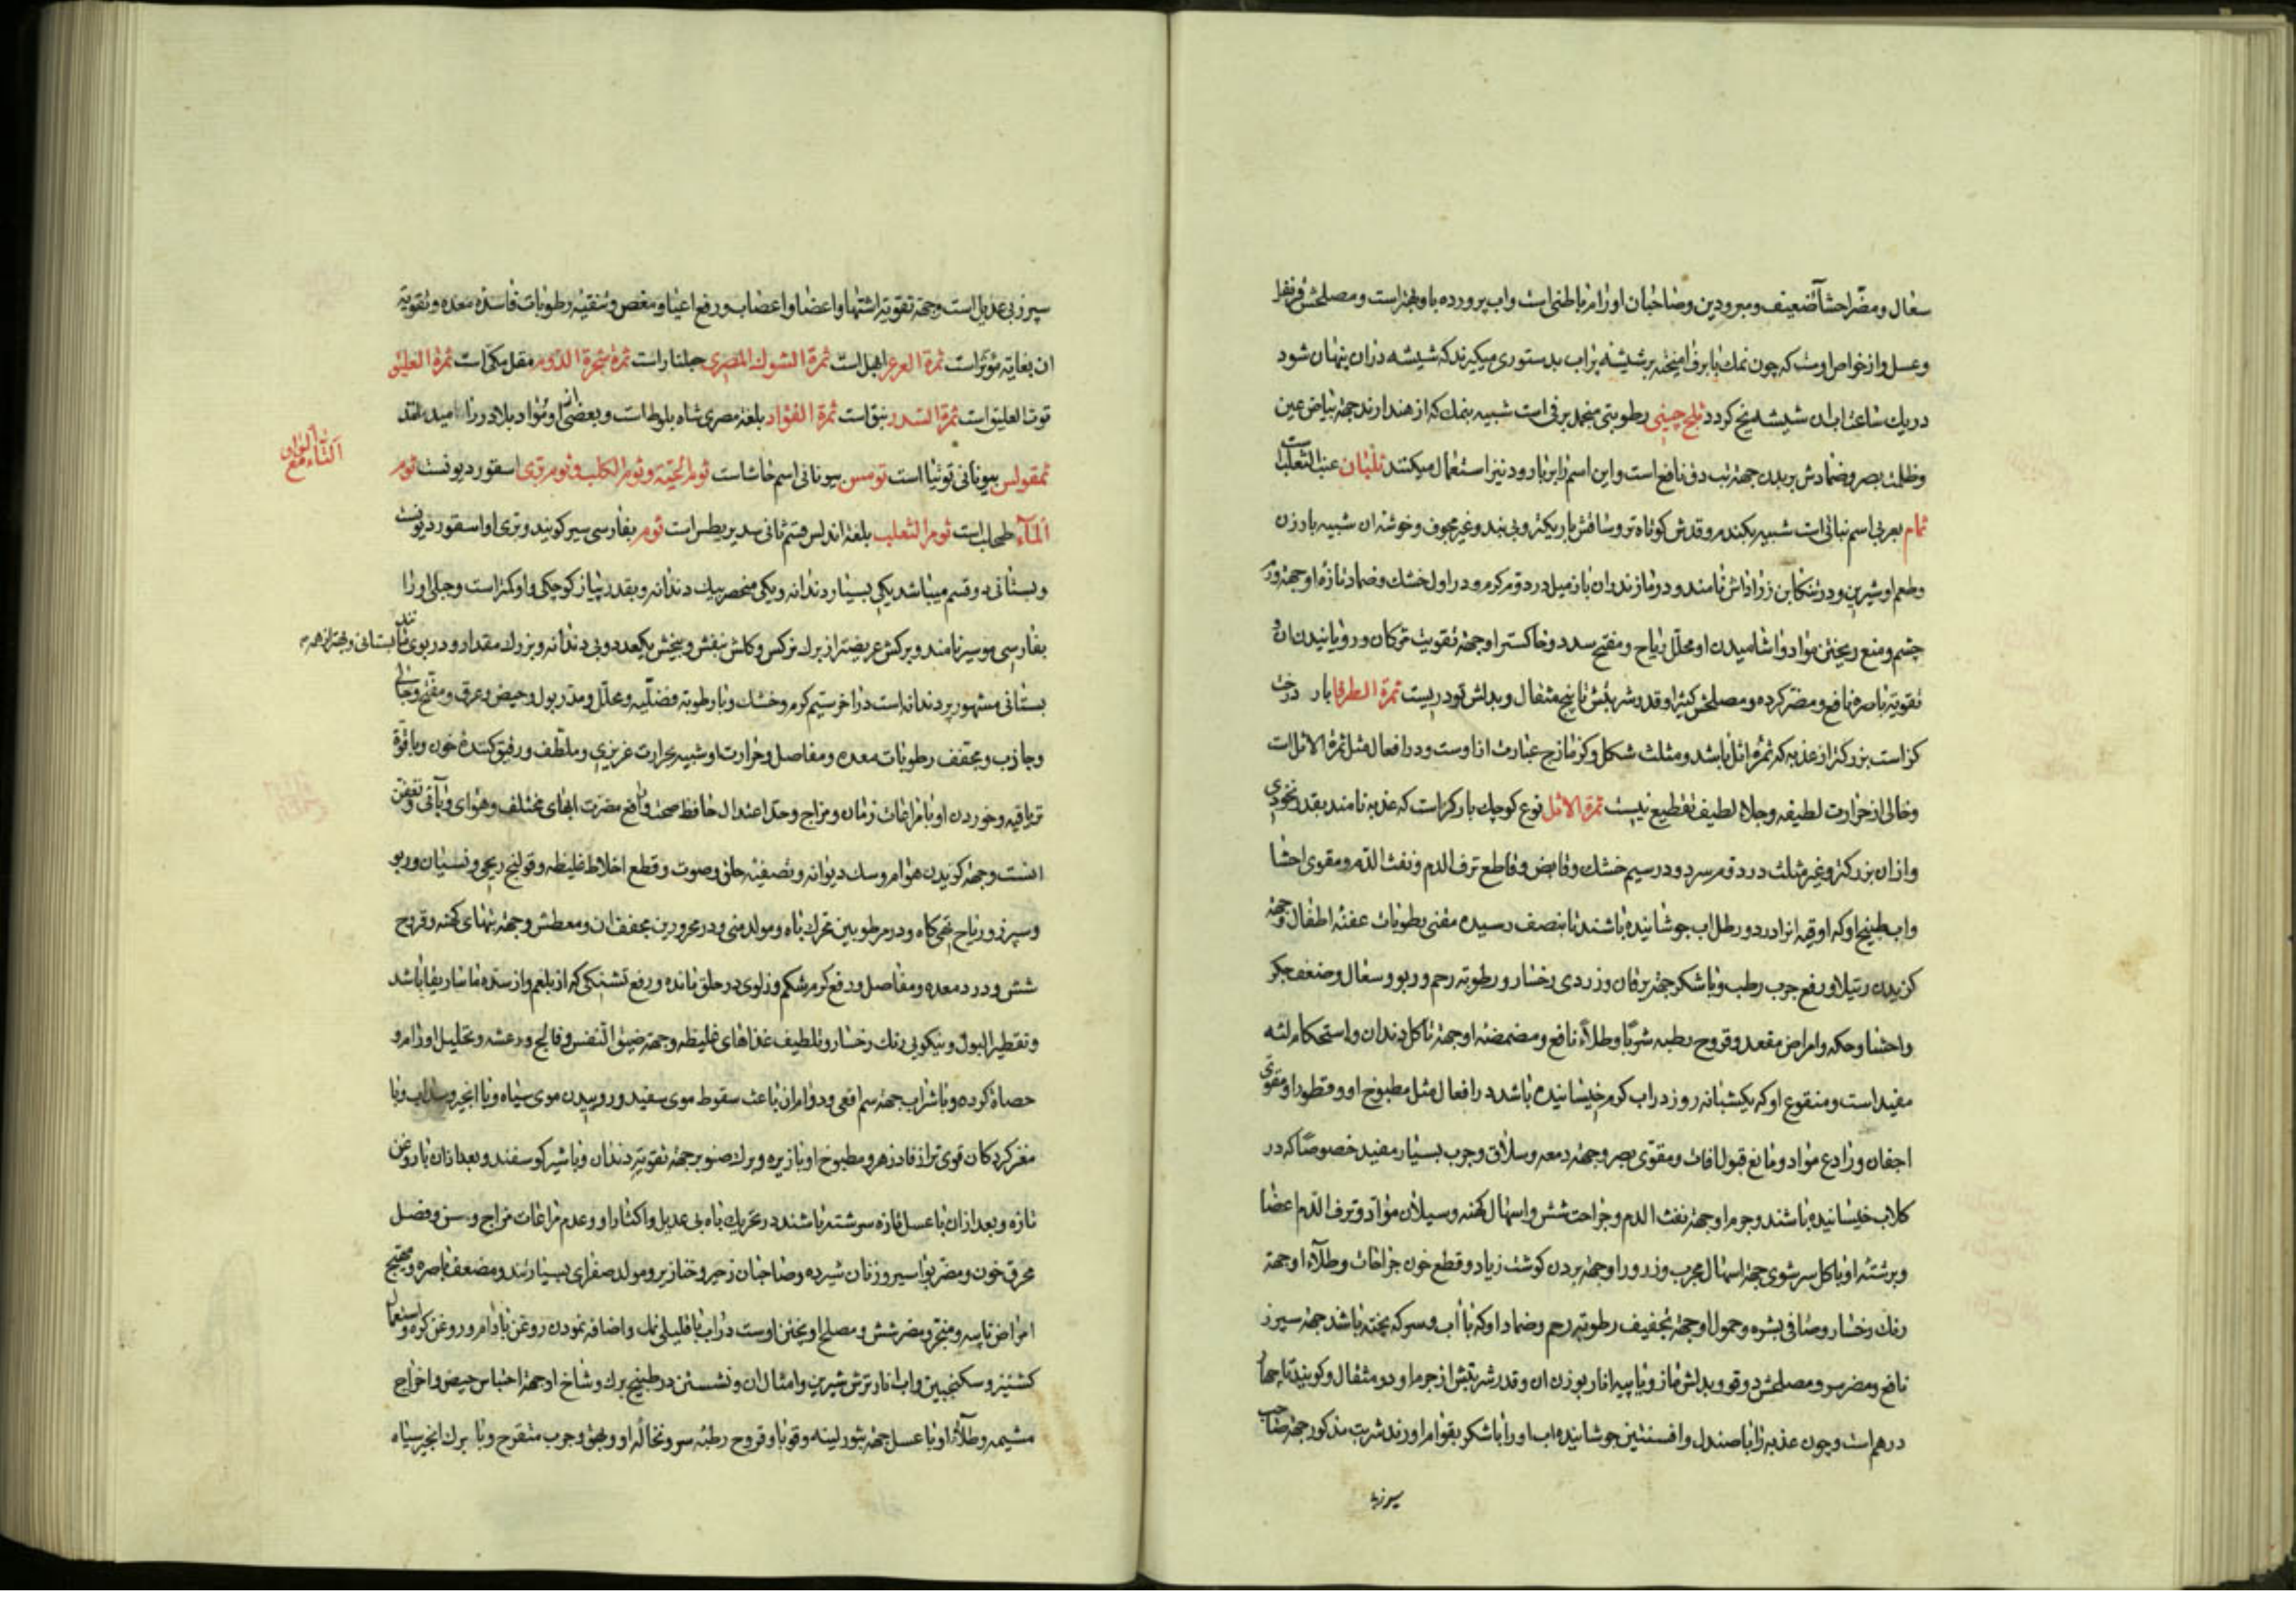 سعال و مضر احشاء ضعیف و مبرودین و صاحبان اورام باطنی است و اب پرورده باو بهتر است و مصلحش قرنفل
و عسل و از خواص اوست که چون نمک با برف امیخته بر شیشه پراب بدستوری میکیرند که شیشه دران پنهان شود
در یک ساعت اب ان شیشه یخ کردد ثلج چینی رطوبتی منجمد برفی است شبیه بنمک که از هند ارند جهة بیاض عین
و ظلمت بصر و ضمادش بر بدن جهة تب دق نافع است و این اسم را بر بارود نیز استعمال میکنند ثلثان عنب الثعلب است
ثمام بعربی اسم نباتی است شبیه بکندم و قدش کوتاه تر و ساقش باریکتر و بی بند و غیر مجوف و خوشه ان شبیه بارزن
و طعم او شیرین و در تنکابن زراداش نامند و در مازندران بازمیل در دوم کرم و در اول خشک و ضماد تازه او جهة ورم
چشم و منع ریختن مواد و اشامیدن او محلل ریاح و مفتح سدد و خاکستر او جهة تقویت مژکان و رویانیدن ان و
تقویة باصره نافع و مضر کرده و مصلحش کتیرا و قدر شربتش تا پنج مثقال و بدلش تودریست ثمرة الطرفا بار درخت
کز است بزرکتر از عذبه که ثمره اثل باشد و مثلث شکل و کزمازج عبارت ازاوست و در افعال مثل ثمرة الاثل است
و خالی از حرارت لطیفه و جلاء لطیف تقطیع نیست ثمرة الاثل نوع کوچک بار کز است که عذبه نامند بقدر نخودی
و ازان بزرکتر و غیر مثلث در دوم سرد و در سیم خشک و قابض و قاطع نزف الدم و نفث الدم و مقوی احشا
و اب طبیخ او که اوقیه انرا در دو رطل اب جوشانیده باشند تا بنصف رسیده مفنی رطوبات عفنه اطفال و جهة
کزیدن رتیلا و رفع جرب رطب و با شکر جهة یرقان و زردی رخسار و رطوبة رحم و ربو و سعال و ضعف جکر
و احشا و حکه و امراض مقعد و قروح رطبه شربا و طلاء نافع و مضمضه او جهة تاکل دندان و استحکام لثه
مفید است و منقوع او که یکشبانه روز در اب کرم خیسانیده باشد در افعال مثل مطبوخ او و قطور او مقوی
اجفان و رادع مواد و مانع قبول افات و مقوی بصر و جهة دمعه و سلاق و جرب بسیار مفید خصوصا که در
کلاب خیسانیده باشند و جرم او جهة نفث الدم و جراحت شش و اسهال کهنه و سیلان مواد و نزف الدم اعضا
و برشته او با کل سرشوی جهة اسهال مجرب و ذرور او جهة بردن کوشت زیاد و قطع خون جراحات و طلاء او جهة
رنک رخسار و صافی بشره و حمول او جهة تجفیف رطوبة رحم و ضماد او که با آب و سرکه پخته باشد جهة سپرز
نافع و مضر سر و مصلحش دوقو و بدلش مازو با پیه انار بوزن ان و قدر شربتش از جرم او دو مثقال و کویند تا چهار
درهم است و چون عذبه را با صندل و افسنتین جوشانیده اب او را با شکر بقوام اورند شربت مذکور جهة صاحب
سپرز بی
سپرز بی عدیل است و جهة تقویة اشتها و اعضا و اعصاب و رفع اعیا و مغص و تنقیه رطوبات فاسده معده و تقویة
ان بغایة مؤثر است ثمرة العرعر ابهل است ثمرة الشوک المصری جلنار است ثمرة شجرة الدوم مقل مکی است ثمرة العلیق
توت العلیق است ثمرة السدر نبق است ثمرة الفؤاد بلغة مصری شاه بلوط است و بعضی بلادر را نامیده اند
الثاء مع الواو
ثمقولس بیونانی توتیا است ثومس بیونانی اسم حاشا است ثوم الحیة و ثوم الکلب و ثوم بری اسقوردیون است ثوم
الماء طحلب است ثوم الثعلب بلغة اندلس قسم ثانی سدیریطس است ثوم بفارسی سیر کویند و بری او اسقوردیون است
و بستانی دو قسم میباشد یکی بسیار دندانه و یکی منحصر بیک دندانه و بقدر پیاز کوچکی و او کمتر است و جبلی او را
بفارسی موسیر نامند و برکش عریضتر از برک نرکس و کلش بنفش و بیخش یکعدد و بی دندانه و بزرک مقدار و در بوی تند تر از بستانی و بهترین همه
بستانی مشهور پر دندانه است در اخر سیم کرم و خشک و با رطوبة فضلیه و محلل و مدر بول و حیض و عرق و مفتح و جالی
و جاذب و مجفف رطوبات معده و مفاصل و حرارت او شبیه بحرارت غریزی و ملطف و رقیق کننده خون و با قوة
تریاقیه و خوردن او با مراعات زمان و مزاج و حد اعتدال حافظ صحت و رافع مضرت ابهای مختلف و هوای وبائی و تعفن
انست و جهة کزیدن هوام و سک دیوانه و تصفیه حلق و صوت و قطع اخلاط غلیظه و قولنج ریحی و نسیان و ربو
و سپرز و ریاح تهی کاه و در مرطوبین محرک باه و مولد منی و در محرورین مجفف ان و معطش و جهة تبهای کهنه و قروح
شش و درد معده و مفاصل و رفع کرم شکم و زلوی در حلق مانده و رفع تشنکی که از بلغم و از سده ماساریقا باشد
و تقطیر البول و نیکویی رنک رخسار و تلطیف غذاهای غلیظه و جهة ضیق النفس و فالج و رعشه و تحلیل اورام و
حصاة کرده و با شراب جهة سم افعی و دوام ان باعث سقوط موی سفید و روییدن موی سیاه و با انجیر و سداب و با
مغز کردکان قوی تر از فادزهر و مطبوخ او با زیره و برک صنوبر جهة تقویة دندان و با شیر کوسفند و بعد ازان با روغن
تازه و بعد ازان با عسل تازه سرشته باشند در تحریک باه بی عدیل و اکثار او و عدم مراعات مزاج و سن و فصل
محرق خون و مضر بواسیر و زنان شیرده و صاحبان زحیر و خنازیر و مولد صفرای بسیار تند و مضعف باصره و مهیج
امراض یابسه و منجر و مضر شش و مصلح او پختن اوست در اب با قلیلی نمک و اضافه نمودن روغن بادام و روغن کره و استعمال
کشنیز و سکنجبین و اب انار ترش شیرین و امثال ان و نشستن در طبیخ برک و شاخ او جهة احتباس حیض و اخراج
مشیمه و طلاء او با عسل جهة بثور لبنیه و قوبا و قروح رطبه سر و نخاله او و بهق و جرب متقرح و با برک انجیر سیاه